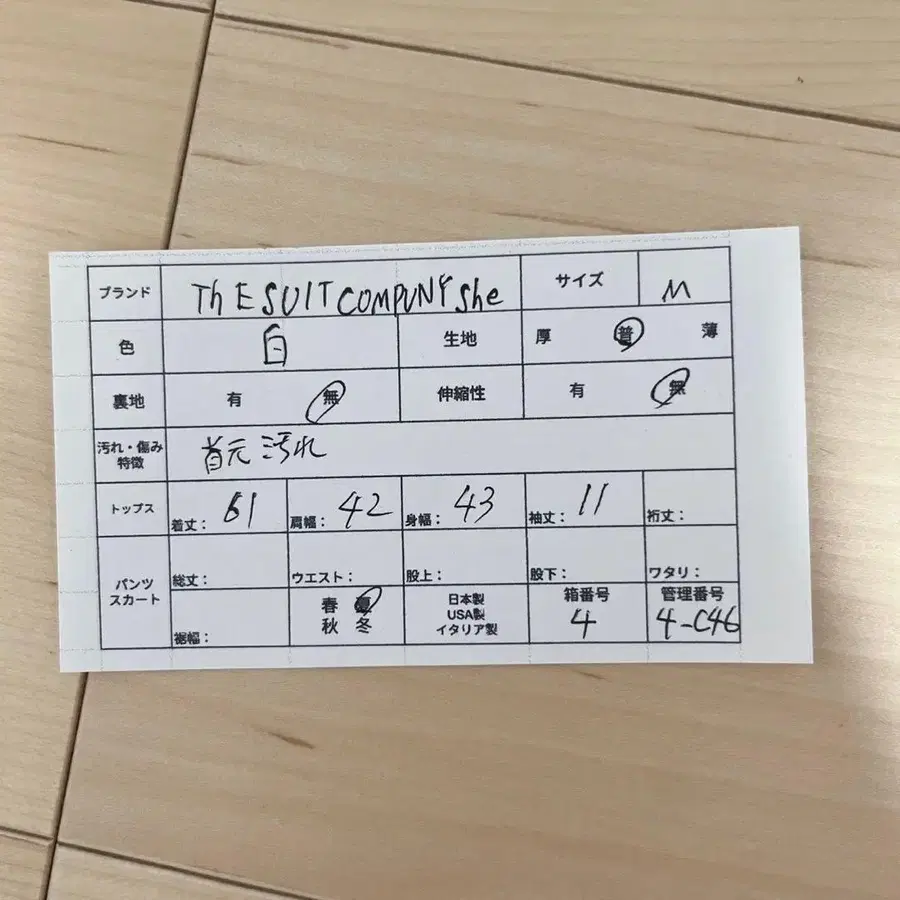 ブランド ThE SUIT COMPUNY She サイズ M
色 白 生地 厚 普 薄
裏地 有 無 伸縮性 有 無
汚れ・傷み 特徴 首元 汚れ
トップス 着丈： 61 肩幅： 42 身幅： 43 袖丈： 11 裄丈：
パンツ スカート 総丈： ウエスト： 股上： 股下： ワタリ：
裾幅： 春 夏 秋 冬 日本製 USA製 イタリア製 箱番号 4 管理番号 4-C46